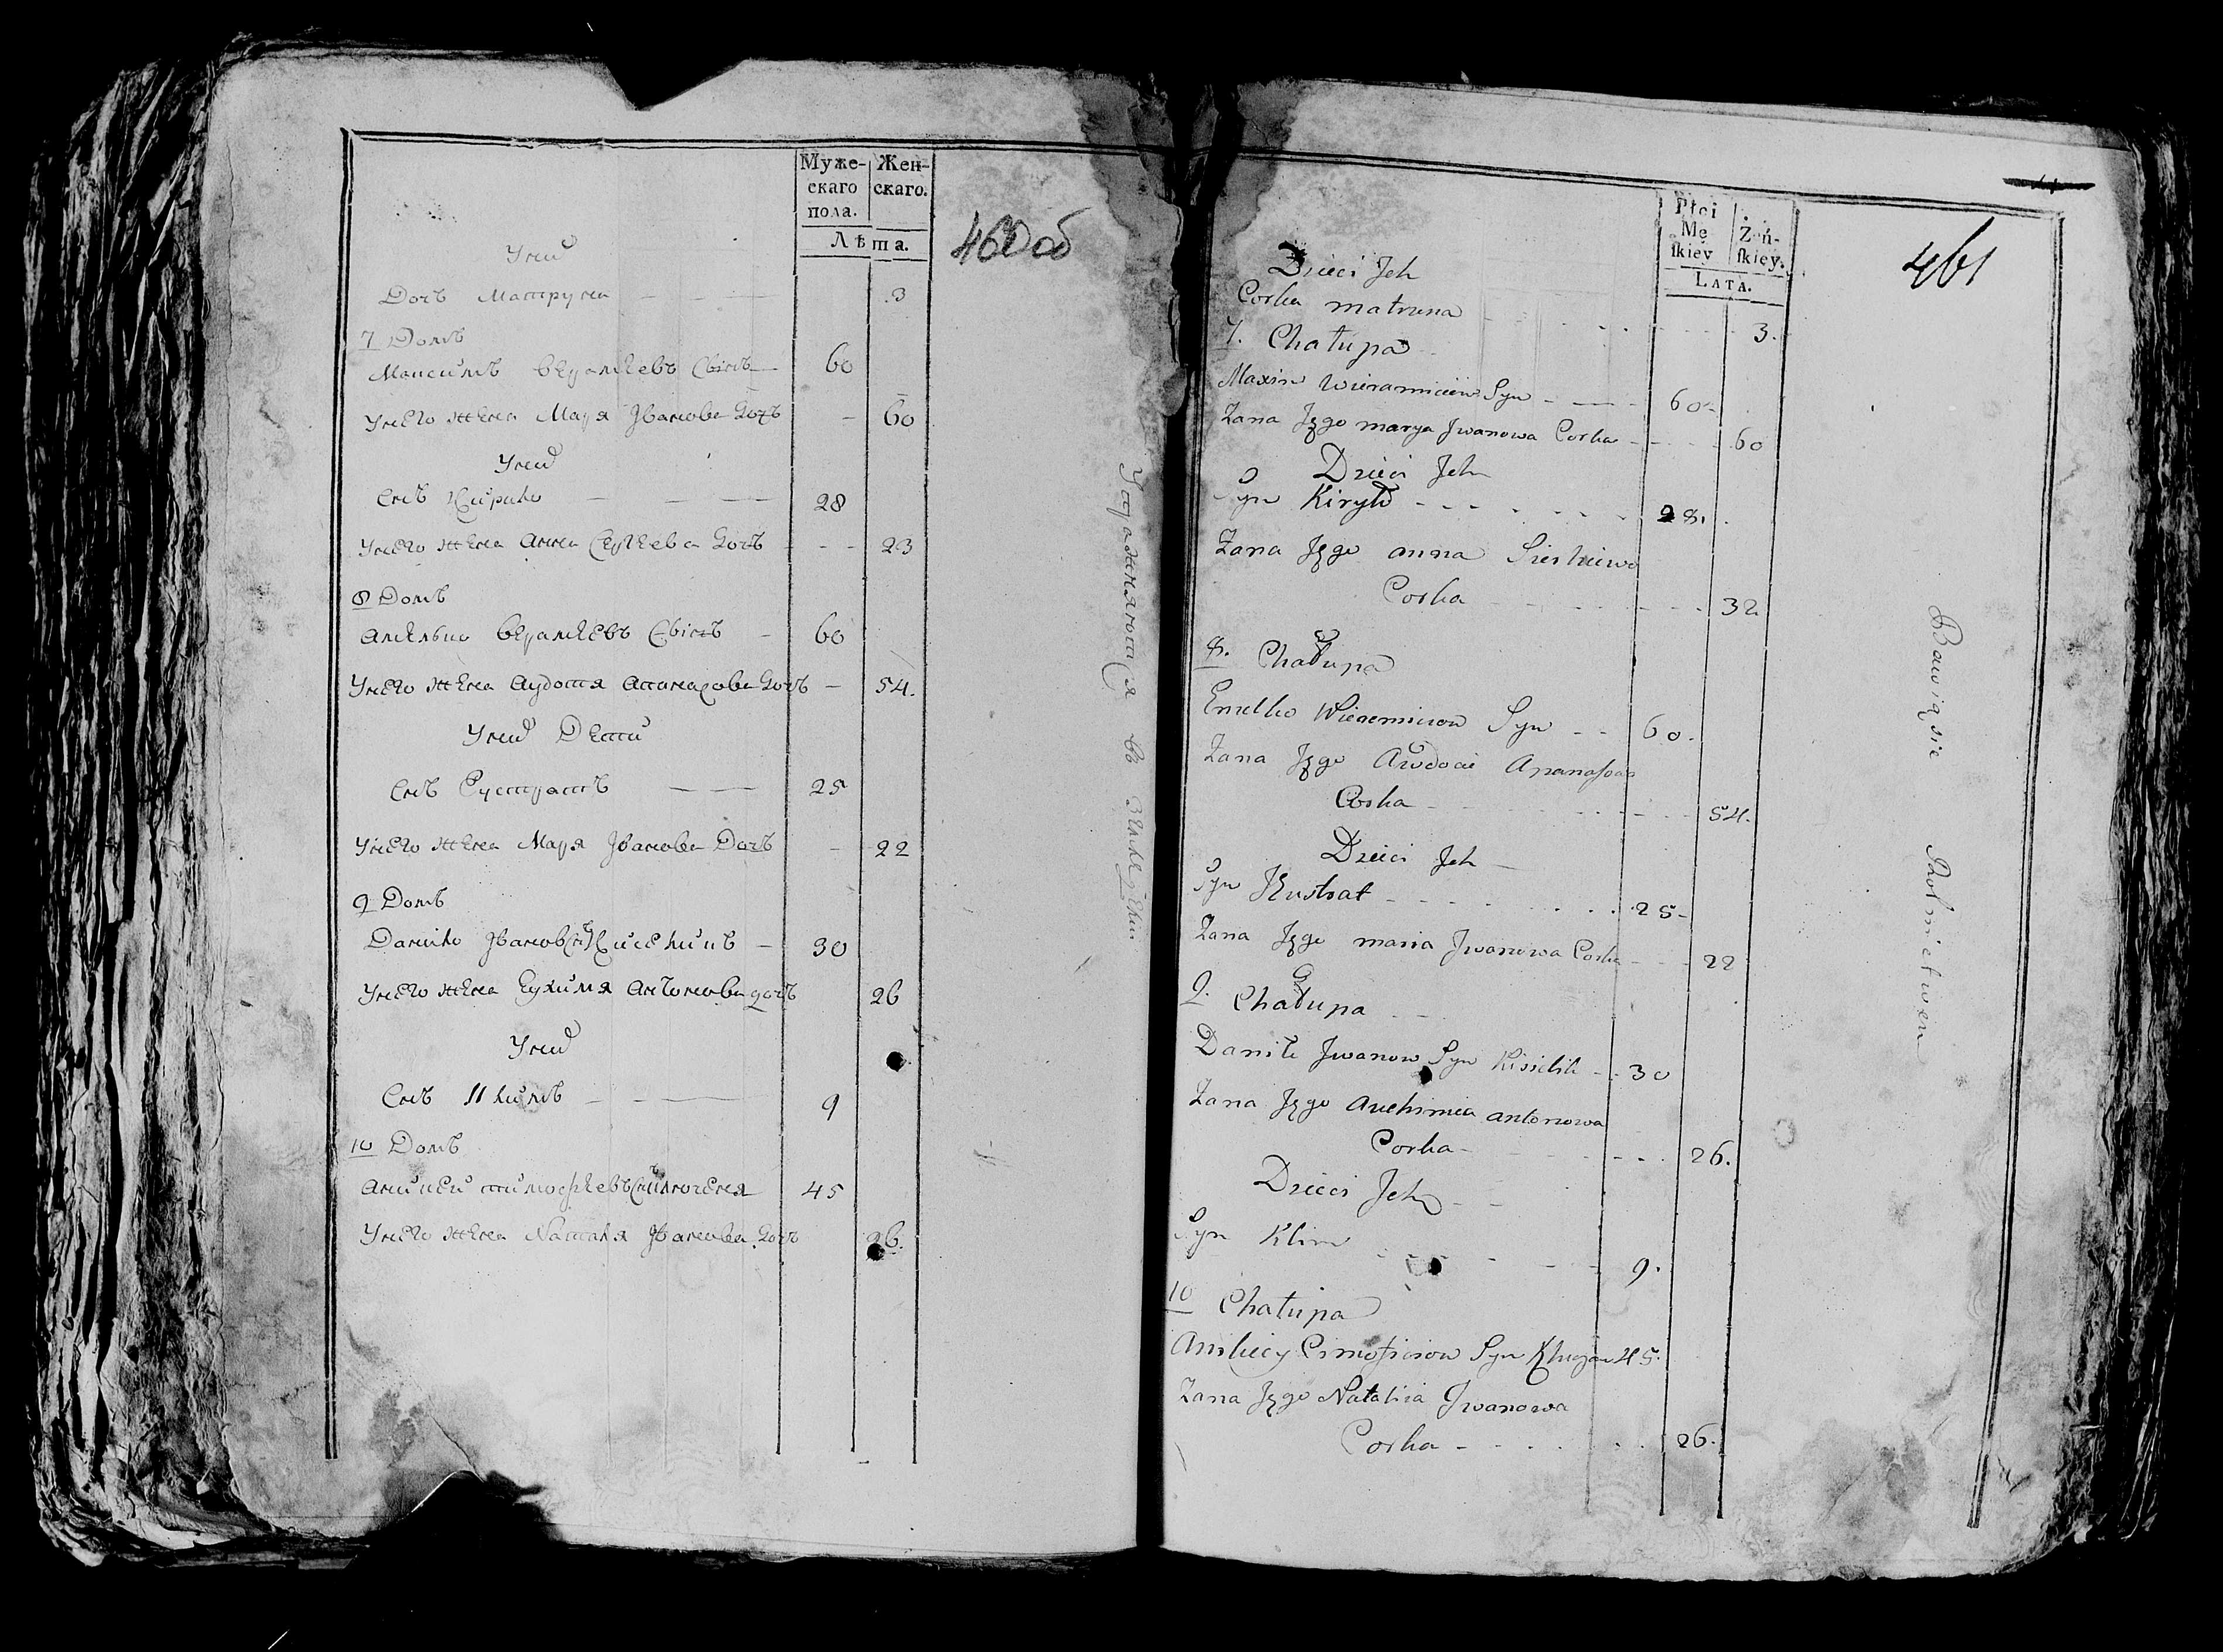 Муже-
скаго
пола.
Жен-
скаго.
Лѣта.
460 об
Уний
Дочъ Матруна 3
7 Домъ
Максимъ Веремѣевъ Сынъ 60
Унего жена Маря Іванова Дочъ 60
Уний
Снъ Кирило 28
Унего жена Анна Сергѣева Дочъ 23
8 Домъ
Амельно Веремѣевъ Сынъ 60
Унего жена Аудотя Апанасова Дочъ 54.
Уний Дети
Снъ Еустратъ 25
Унего жена Маря Іванова Дочъ 22
9 Домъ
Данило Івановъ Снъ Киселикъ 30
Унего жена Еухимя Антонова дочъ 26
Уний
Снъ Климъ 9
10 Домъ
Аникей тимофѣевъ Снъ 45
Унего жена Наталя Іванова Дочъ 26.
Упражняются въ
Płci
Mę
skiey
Żeń-
skiey.
LATA.
461
Dzieci Jch
Corka matruna 3.
7. Chałupa
Maxim Wieramieiew Syn 60.
Zana Jego marya Jwanowa Corka 60
Dzieci Jch
Syn Kiryło 28.
Zana Jego anna Sierhiewa
Corka 32
8. Chałupa
Emelko Wieremieiow Syn 60.
Zana Jego Awdocia Apanasowa
Corka 54.
Dzieci Jch
Syn Jeustrat 25
Zana Jego maria Jwanowa Corka 22
9. Chałupa
Daniło Jwanow Syn Kisielik 30
Zana Jego Auchimia antonowa
Corka 26.
Dzieci Jch
Syn Klim 9.
10 Chałupa
Anikiey Cimofieiow Syn 45.
Zana Jego Natalia Jwanowa
Corka 26.
Bawią sie Rolnictwem